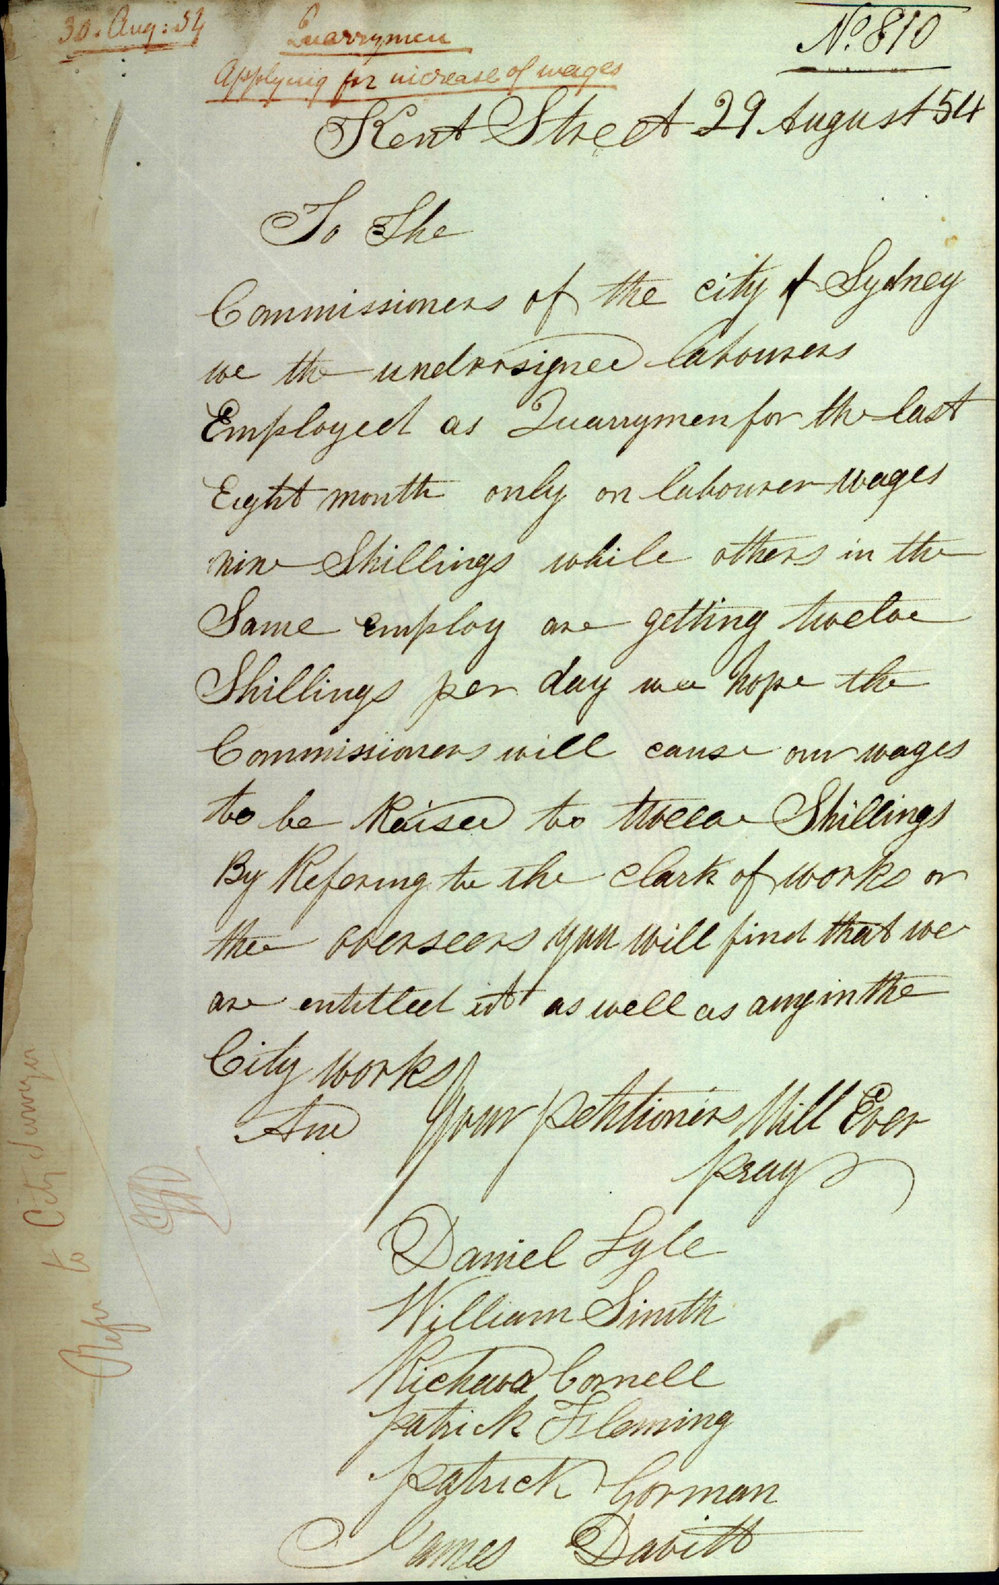 30. Aug: 54
Quarrymen
No. 810
Applying for increase of wages
Kent Street 29 August 54
To The
Commissioners of the city of Sydney
we the undersigned labourers
Employed as Quarrymen for the last
Eight month only on labourer wages
nine Shillings while others in the
Same employ are getting twelve
Shillings per day we hope the
Commissioners will cause our wages
to be Raised to twelve Shillings
By Refering to the clark of works or
the overseers you will find that we
are entitled it as well as any in the
City works
And your petitioners Will Ever
pray
Daniel Lyle
William Smith
Richard Cornell
Patrick Fleming
Patrick Gorman
James Davitt
Refer to City Surveyor